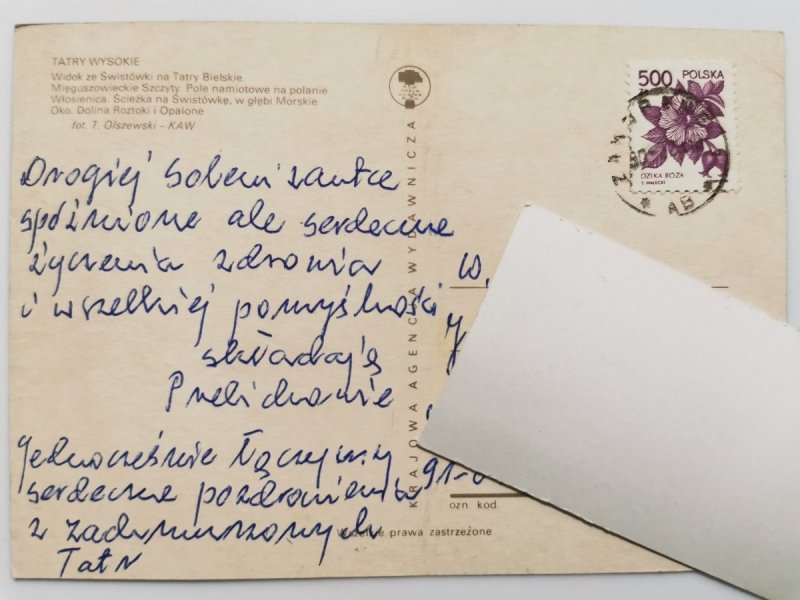 TATRY WYSOKIE
Widok ze Świstówki na Tatry Bielskie.
Mięguszowieckie Szczyty. Pole namiotowe na polanie
Włosienica. Ścieżka na Świstówkę, w głębi Morskie
Oko. Dolina Roztoki i Opalone
fot. T. Olszewski – KAW
500 POLSKA
DZIKA RÓŻA
AB
KRAJOWA AGENCJA WYDAWNICZA
Drogiej Solenizantce
spóźnione ale serdeczne
życzenia zdrowia
i wszelkiej pomyślności
składają
Prelichowie
Jednocześnie łączymy
serdeczne pozdrowienia
z zachmurzonych
Tatr
W,
91-0
ozn. kod.
Wszelkie prawa zastrzeżone